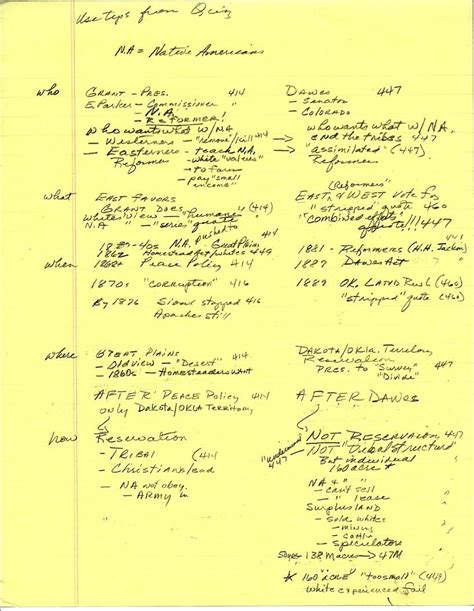 Use tips from Quiz
N.A = Native Americans
who GRANT - PRES. 414
E. Parker - Commissioner "
- N.A.
- REFORMER!
who wants what w/NA
- Westerners - "remove/kill" 414
- Easterners - teach N.A. "
Reformer - white "values"
- to farm
- pay "small
income"
DAWES 447
- Senator
- COLORADO
who wants what w/ N.A.
end the tribes 447
"assimilated" (447)
Reformers
what EAST FAVORS
GRANT DOES
White View - "humane" (414)
N.A " - quote "
(Reformers)
EAST & WEST Vote for
"stripped" quote 460
"combined efforts"
quote!!! 447
1830-40s N.A. pushed to Great Plains
1862 Homestead Act/whites 449
when 1868+ Peace Policy 414
1870s "CORRUPTION" 416
By 1876 Sioux stopped 416
Apaches still
1881 - Reformers (H.H. Jackson)
1887 DAWES ACT
1889 OK. LAND Rush (460)
"stripped" quote (460)
where GREAT Plains
- Old view - "Desert" 414
- 1860s - Homesteaders Want
AFTER PEACE Policy
only DAKOTA/OKLA TERRITORY
DAKOTA/OKLA. Territory
Reservation
PRES. to "Survey" 447
"Divide"
AFTER DAWES
how Reservation
- TRIBAL (414
- Christians lead
- NA not obey
- ARMY in
"undermined" 447
NOT RESERVATION 447
NOT Tribal structure
But individual
160 acre *
NA " "
- can't sell
- " lease
SURPLUS LAND
- sold whites
- mining
- cattle
- speculators
138 M acres → 47M
* 160 "ACRE" "too small" (449)
White experienced fail